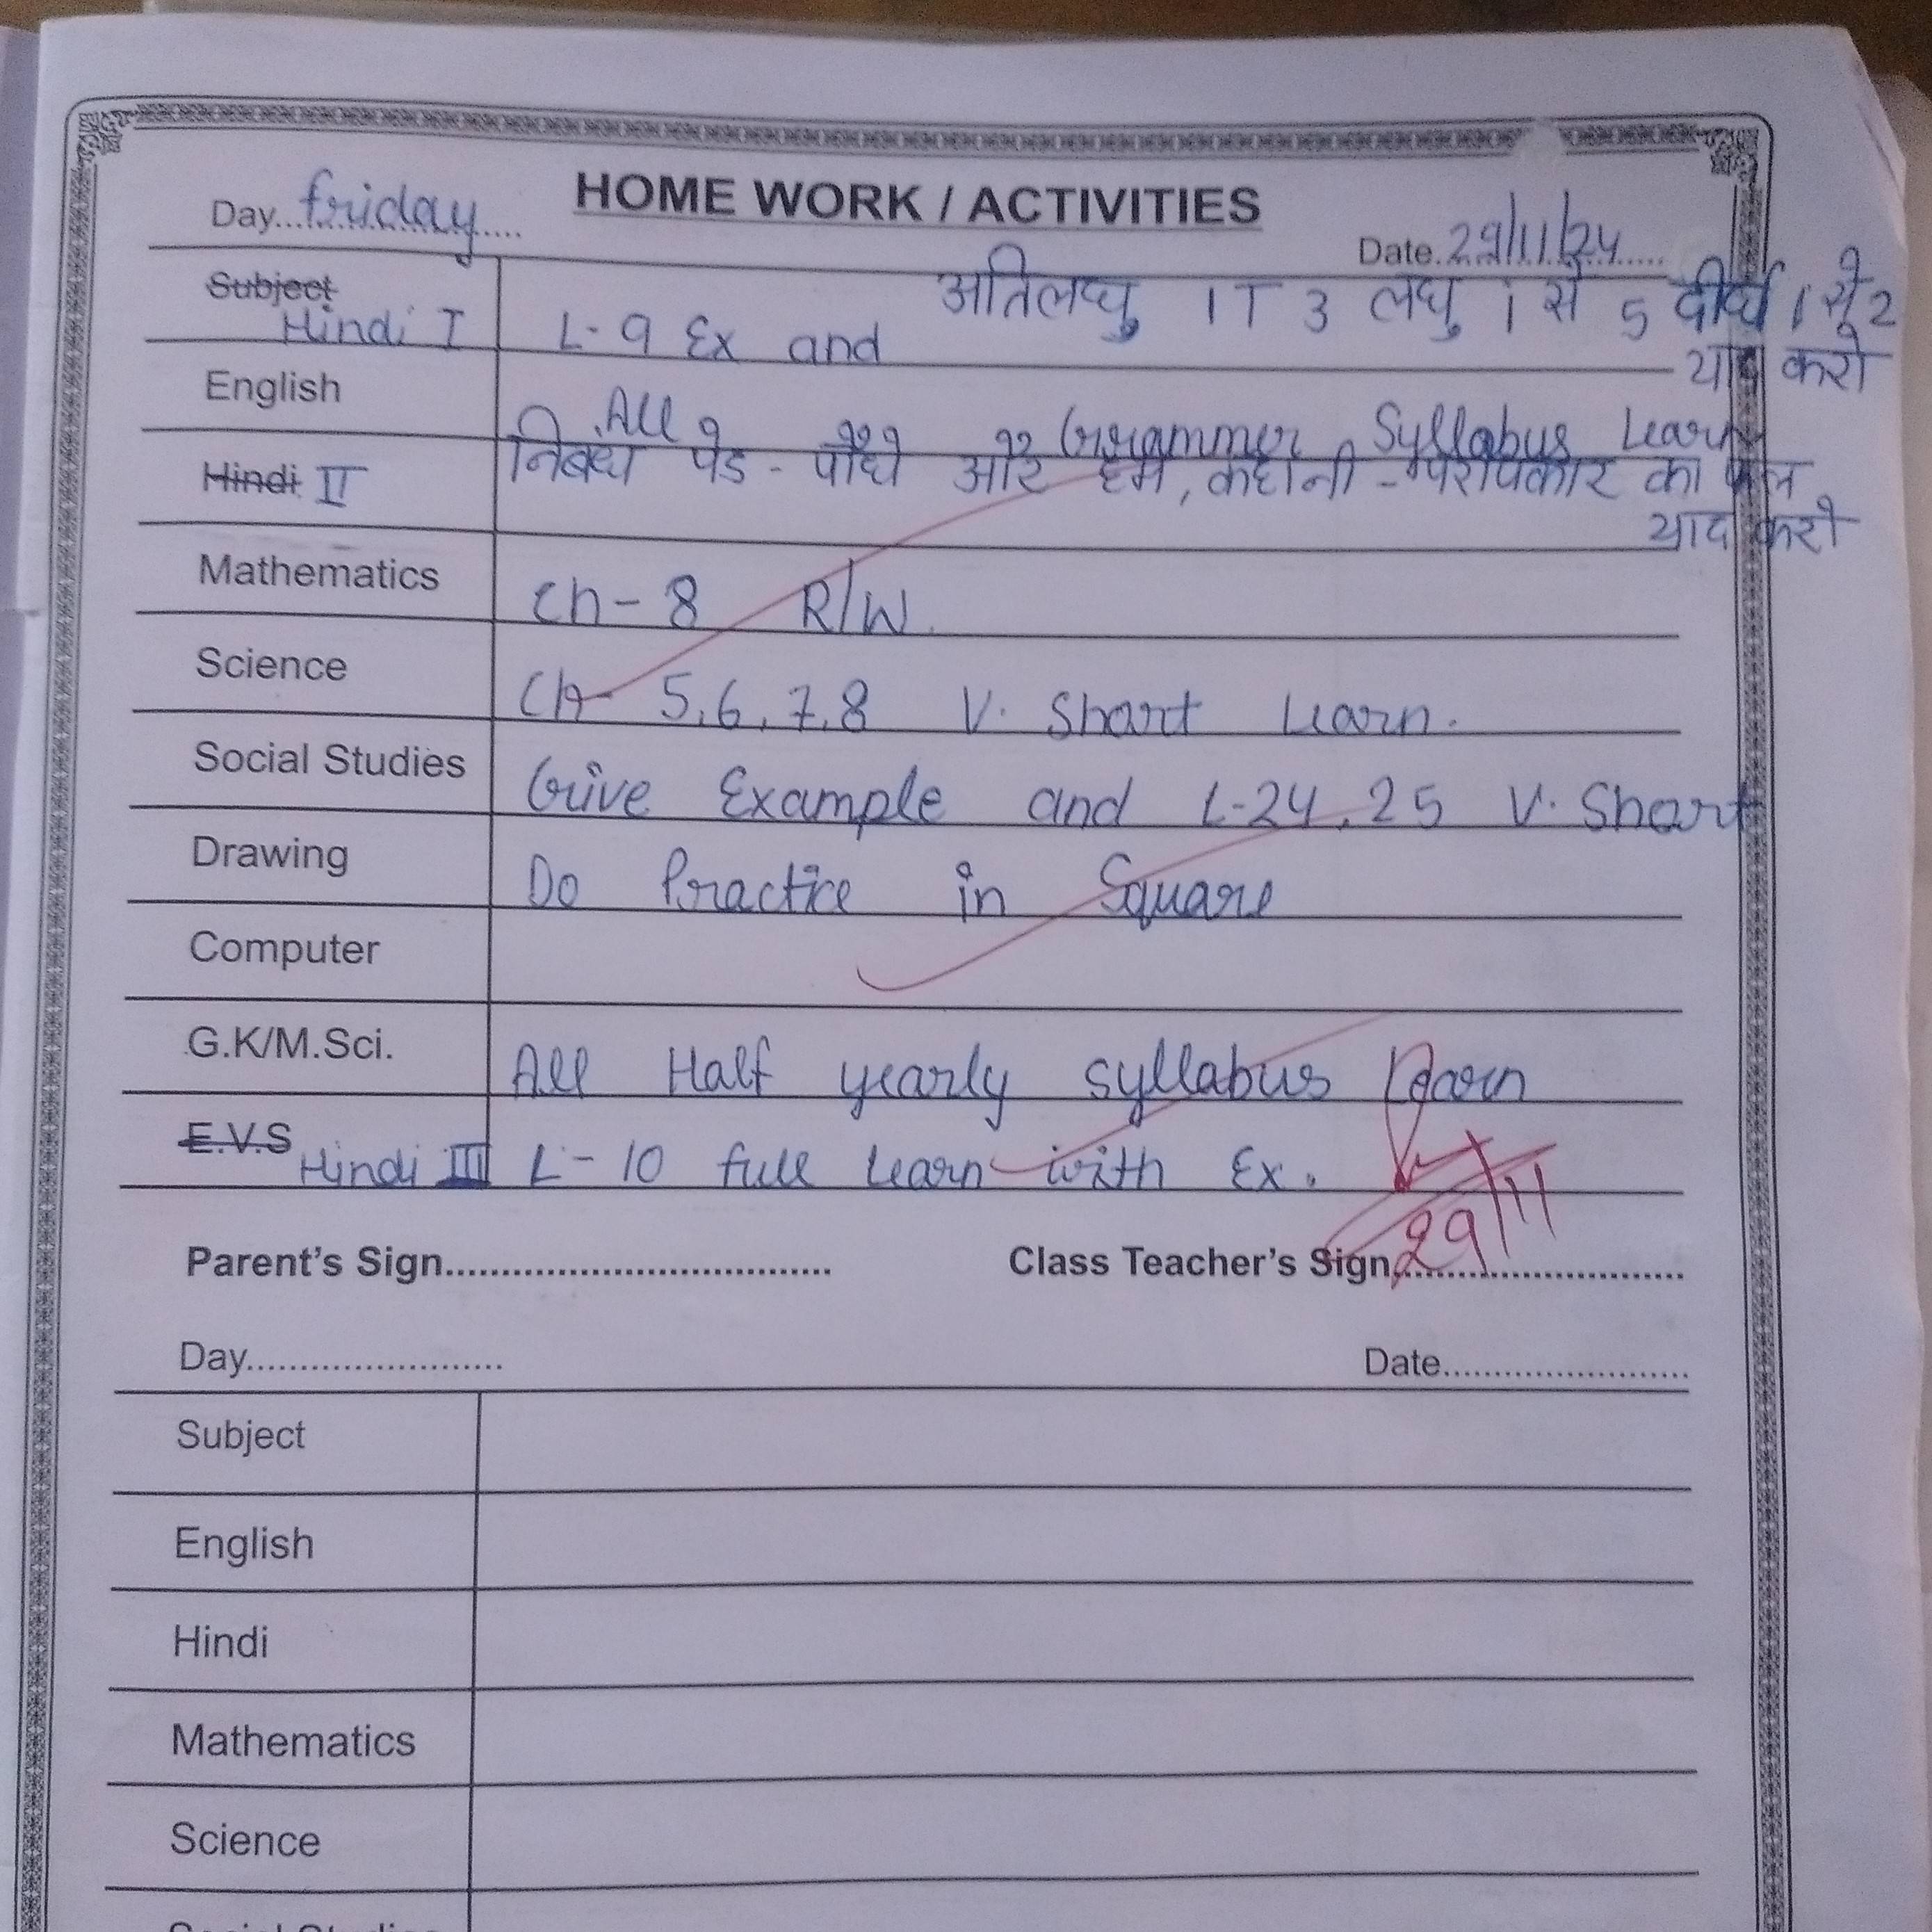 HOME WORK / ACTIVITIES
Day...friday....
Date.29/11/24.....
Subject
Hindi I
L-9 Ex and अतिलघु 1 T 3 लघु 1 से 5 दीर्घ 1 से 2
याद करो
English
All Grammer Syllabus Learn
Hindi II
निबंध पेड - पौधे और हम, कहानी - परोपकार का फल
याद करो
Mathematics
Ch-8 R/W.
Science
Ch- 5,6,7,8 V. Short Learn.
Social Studies
Give Example and L-24,25 V. Short
Drawing
Do Practice in Square
Computer
G.K/M.Sci.
All Half yearly syllabus Learn
E.V.S
Hindi III
L-10 full Learn with Ex.
29/11
Parent's Sign..................................
Class Teacher's Sign..........................
Day........................
Date.......................
Subject
English
Hindi
Mathematics
Science
Social Studies